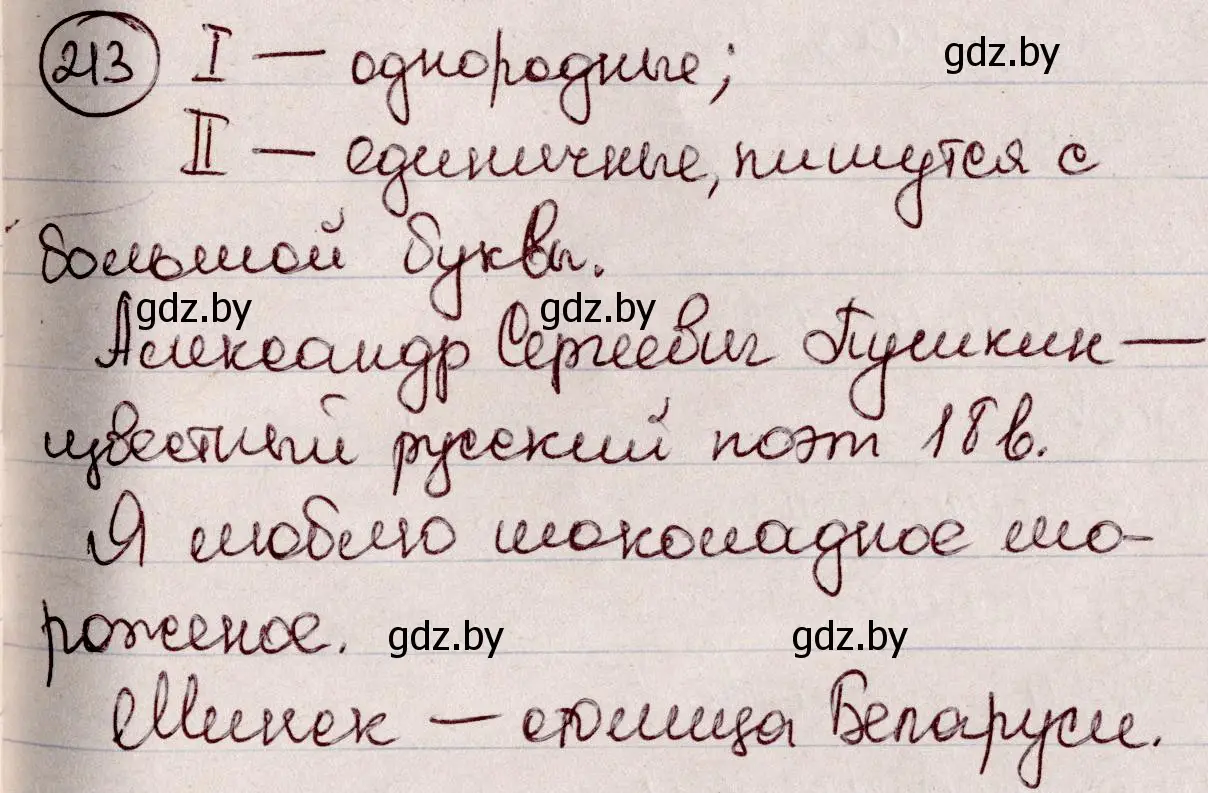 213 I — однородные; gdz.by
II — единичные, пишутся с
большой буквы.
gdz.by gdz.by
Александр Сергеевич Пушкин —
известный русский поэт 18 в.
Я люблю шоколадное мо-
роженое. gdz.by gdz.by
Минск — столица Беларуси.